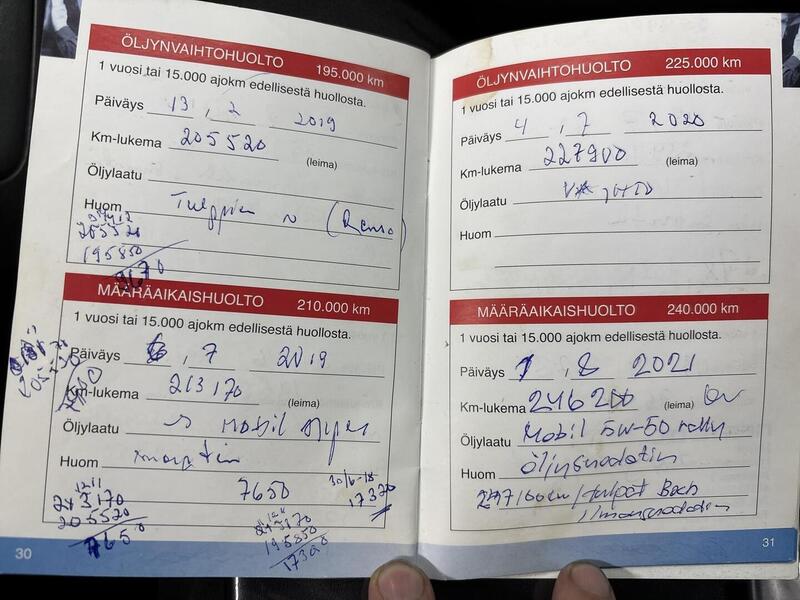 ÖLJYNVAIHTOHUOLTO 195.000 km
1 vuosi tai 15.000 ajokm edellisestä huollosta.
Päiväys 13 . 2 2019
Km-lukema 205520
(leima)
Öljylaatu
Huom
205520
195850
9670
MÄÄRÄAIKAISHUOLTO 210.000 km
1 vuosi tai 15.000 ajokm edellisestä huollosta.
Päiväys 6 . 7 2019
Km-lukema 213170
(leima)
Öljylaatu Mobil
Huom
7650
30/6-18
17320
213170
205520
7650
213170
195850
17320
30
ÖLJYNVAIHTOHUOLTO 225.000 km
1 vuosi tai 15.000 ajokm edellisestä huollosta.
Päiväys 4 . 7 2020
Km-lukema 227900
(leima)
Öljylaatu
Huom
MÄÄRÄAIKAISHUOLTO 240.000 km
1 vuosi tai 15.000 ajokm edellisestä huollosta.
Päiväys 1 . 8 2021
Km-lukema 246200
(leima)
Öljylaatu Mobil 5W-50 rally
Huom öljynsuodatin
tulpat
ilmansuodatin
31